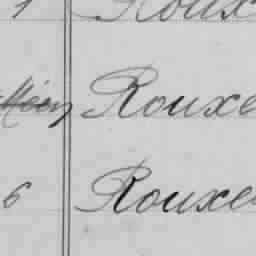 1 Roux
Rouxe
6 Rouxe